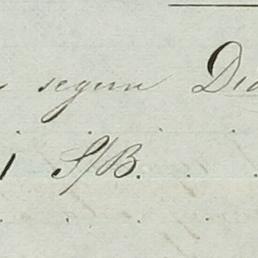 segun Dia
S/B. . . .